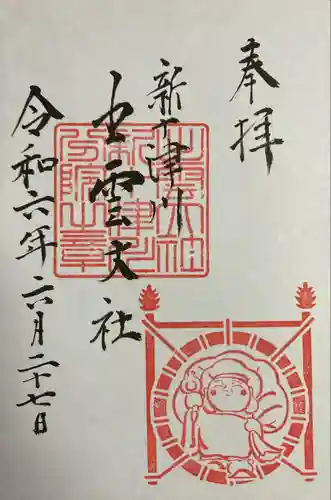 奉拝
新十津川
出雲大社
令和六年六月二十七日